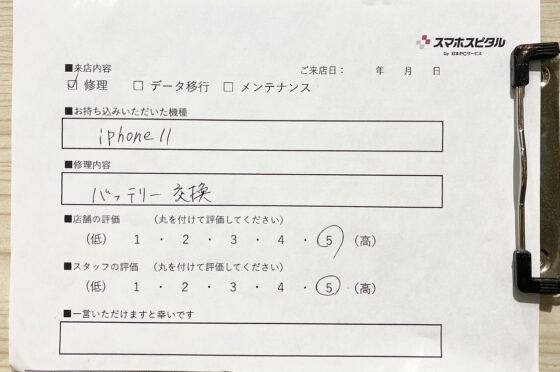 スマホスピタル
by 日本PCサービス
■来店内容
ご来店日： 年 月 日
☑ 修理 □ データ移行 □ メンテナンス
■お持ち込みいただいた機種
iphone 11
■修理内容
バッテリー交換
■店舗の評価 （丸を付けて評価してください）
（低） 1 ・ 2 ・ 3 ・ 4 ・ 5 （高）
■スタッフの評価 （丸を付けて評価してください）
（低） 1 ・ 2 ・ 3 ・ 4 ・ 5 （高）
■一言いただけますと幸いです